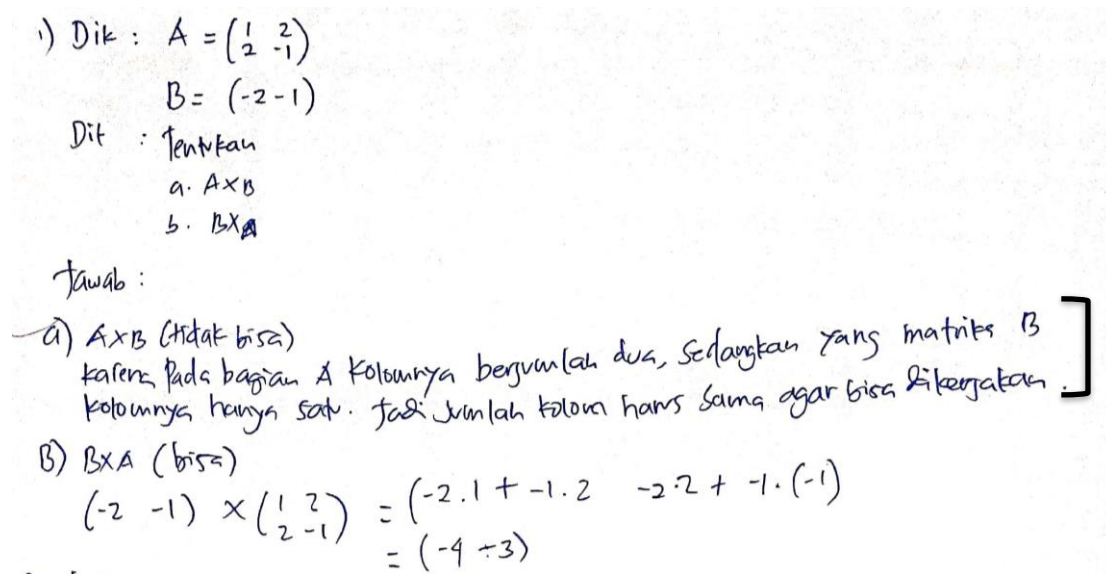 1) Dik : A = (1 2
2 -1)
B = (-2 -1)
Dit : Tentukan
a. A×B
b. B×A
Jawab :
a) A×B (tidak bisa)
karena pada bagian A kolomnya berjumlah dua, sedangkan yang matriks B
kolomnya hanya satu. Jadi jumlah kolom harus sama agar bisa dikerjakan.
B) B×A (bisa)
(-2 -1) × (1 2
2 -1) = (-2.1 + -1.2 -2.2 + -1.(-1))
= (-4 ÷3)